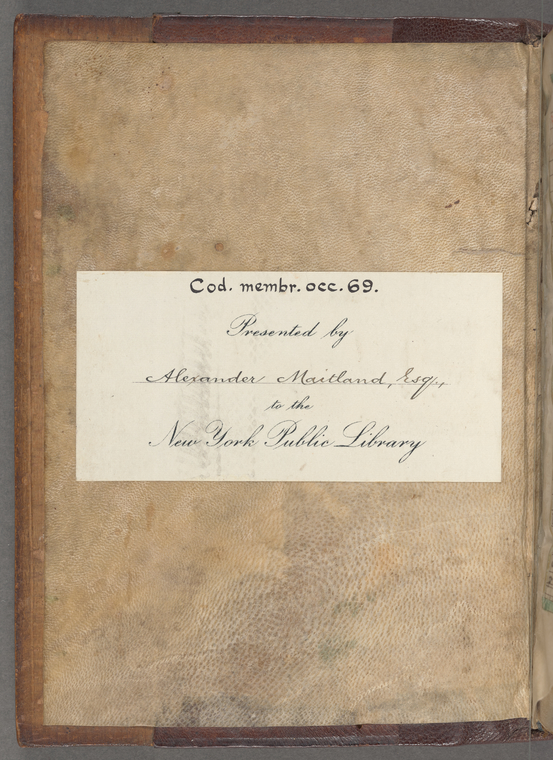 Cod. membr. occ. 69.
Presented by
Alexander Maitland, Esq.,
to the
New York Public Library